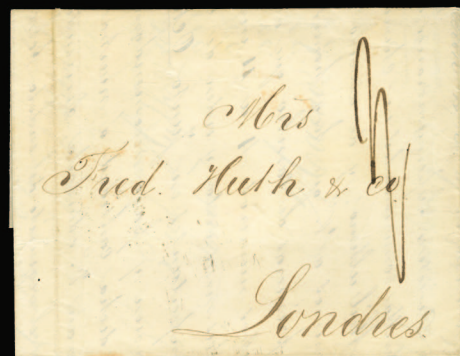 Mrs
Fred. Huth & co.
Londres.